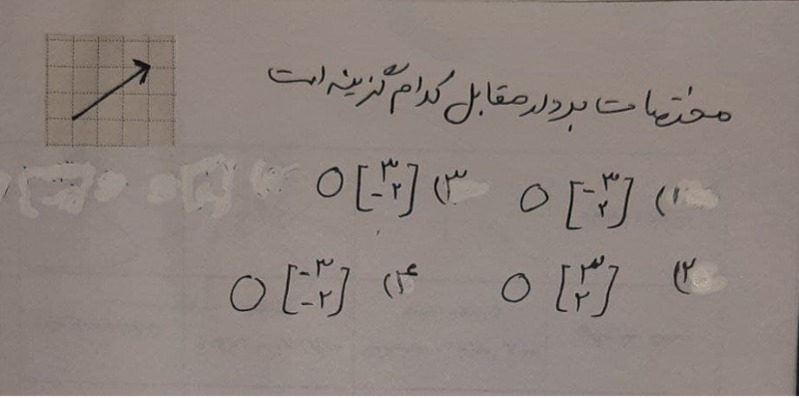 مختصات بردار مقابل کدام گزینه است
۱) [-۳ ۲] ۳) [۳ -۲]
۲) [۳ ۲] ۴) [-۳ -۲]